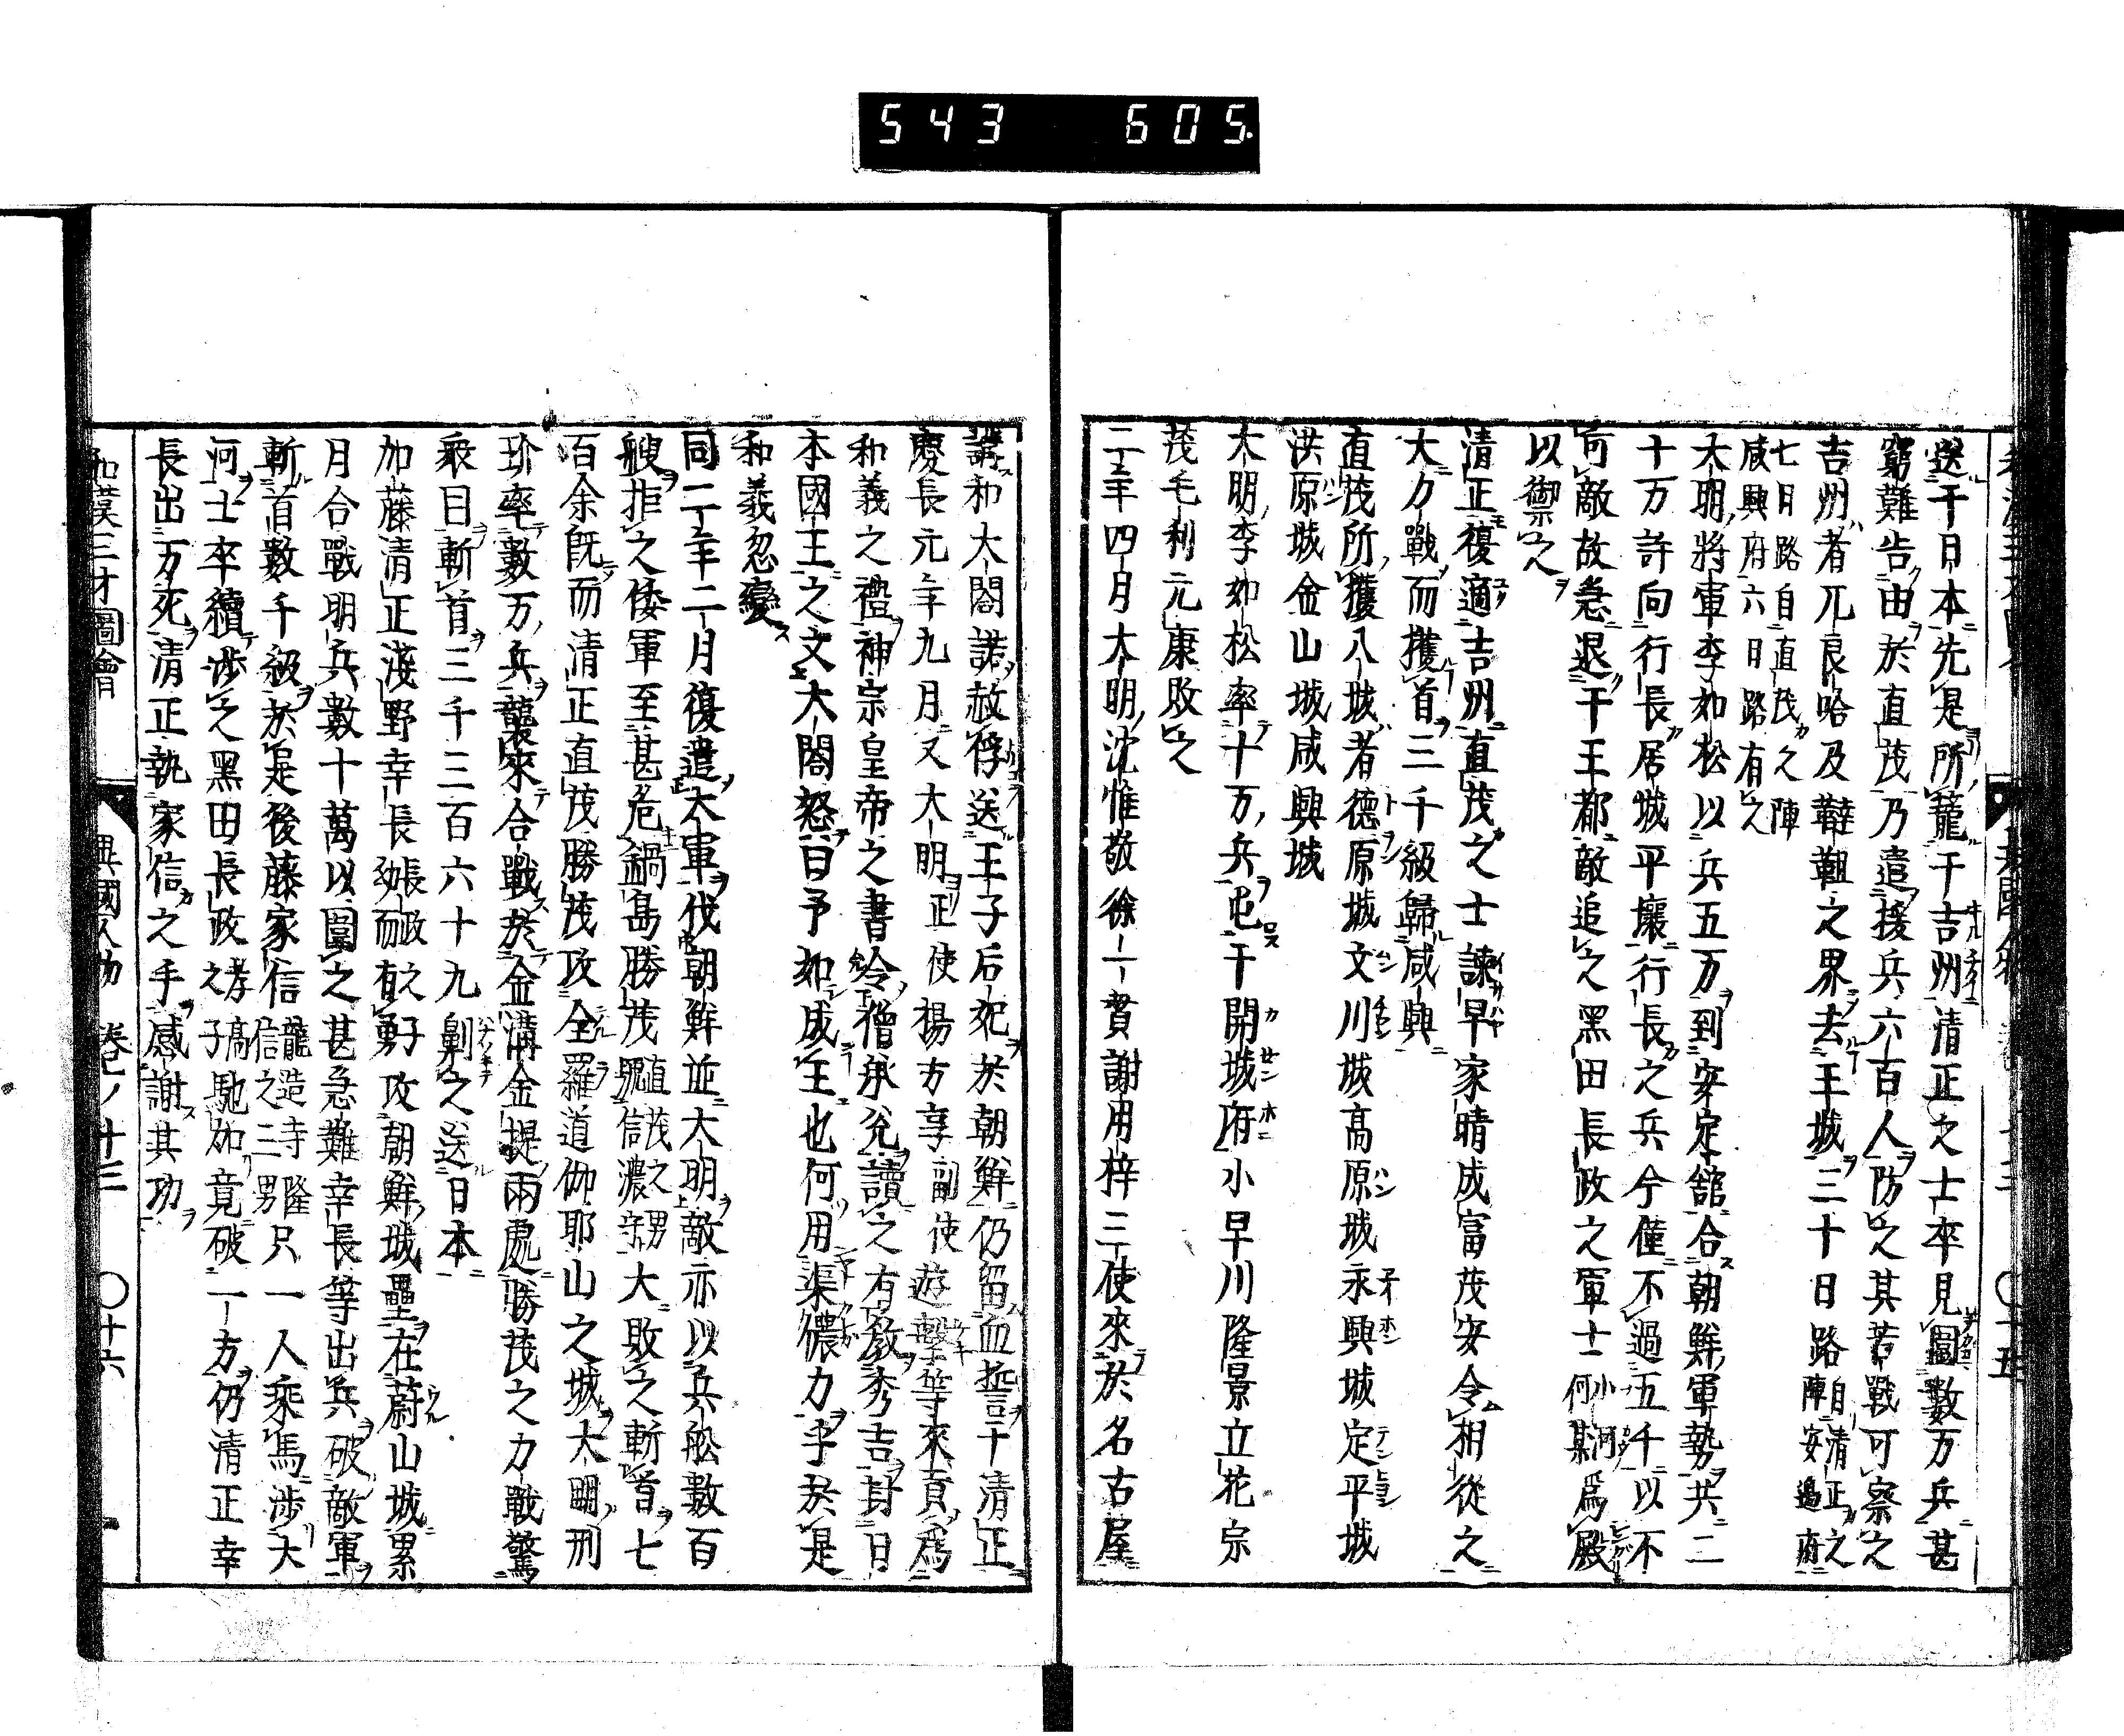 543 605.
送于日本先是所籠于吉州清正之士卒見圍數万兵甚
窮難告由於直茂乃遣援兵六百人防之其若戰可察之
吉州者兀良哈及韃靼之界去王城三十日路自清正之陣安邉府
七日路自直茂之陣咸興府六日路有之
大明將軍李如松以兵五万到安定舘合朝鮮軍勢共二
十万許向行長居城平壤行長之兵今僅不過五千以不
可敵故急退于王都敵追之黑田長政之軍士小河何某爲殿
以禦之
清正復適吉州直茂之士諫早家晴成富茂安令相從之
大力戰而獲首三千級歸咸興
直茂所獲八城者德原城文川城高原城永興城定平城
洪原城金山城咸興城
大明李如松率十万兵屯于開城府小早川隆景立花宗
茂毛利元康敗之
二年四月大明沈惟敬徐一貫謝用梓三使來於名古屋
講和大閤諾赦俘送王子后妃於朝鮮仍留血誓于清正
慶長元年九月又大明正使揚方享副使遊擊等來貢爲
和義之禮神宗皇帝之書令僧承兊讀之有教秀吉封日
本國王之文大閤怒曰予如成王也何用渠儂力乎於是
和義忽變
同二年二月復遣大軍伐朝鮮並大明敵亦以兵舩數百
艘拒之倭軍至甚危鍋島勝茂直茂之男號信濃守大敗之斬首七
百余旣而清正直茂勝茂攻全羅道伽耶山之城大明刑
玠率數万兵襲來合戰於金溝金堤兩處勝茂之力戰驚
衆目斬首三千三百六十九劓之送日本
加藤清正淺野幸長長政之子幼而有勇攻朝鮮城壘在蔚山城累
月合戰明兵數十萬以圍之甚急難幸長等出兵破敵軍
斬首數千級於是後藤家信龍造寺隆信之二男只一人乘馬涉大
河士卒續涉之黑田長政之孝高子馳加竟破一方仍清正幸
長出万死清正執家信之手感謝其功
和漢三才圖會 異國人物 卷ノ十三 〇十六